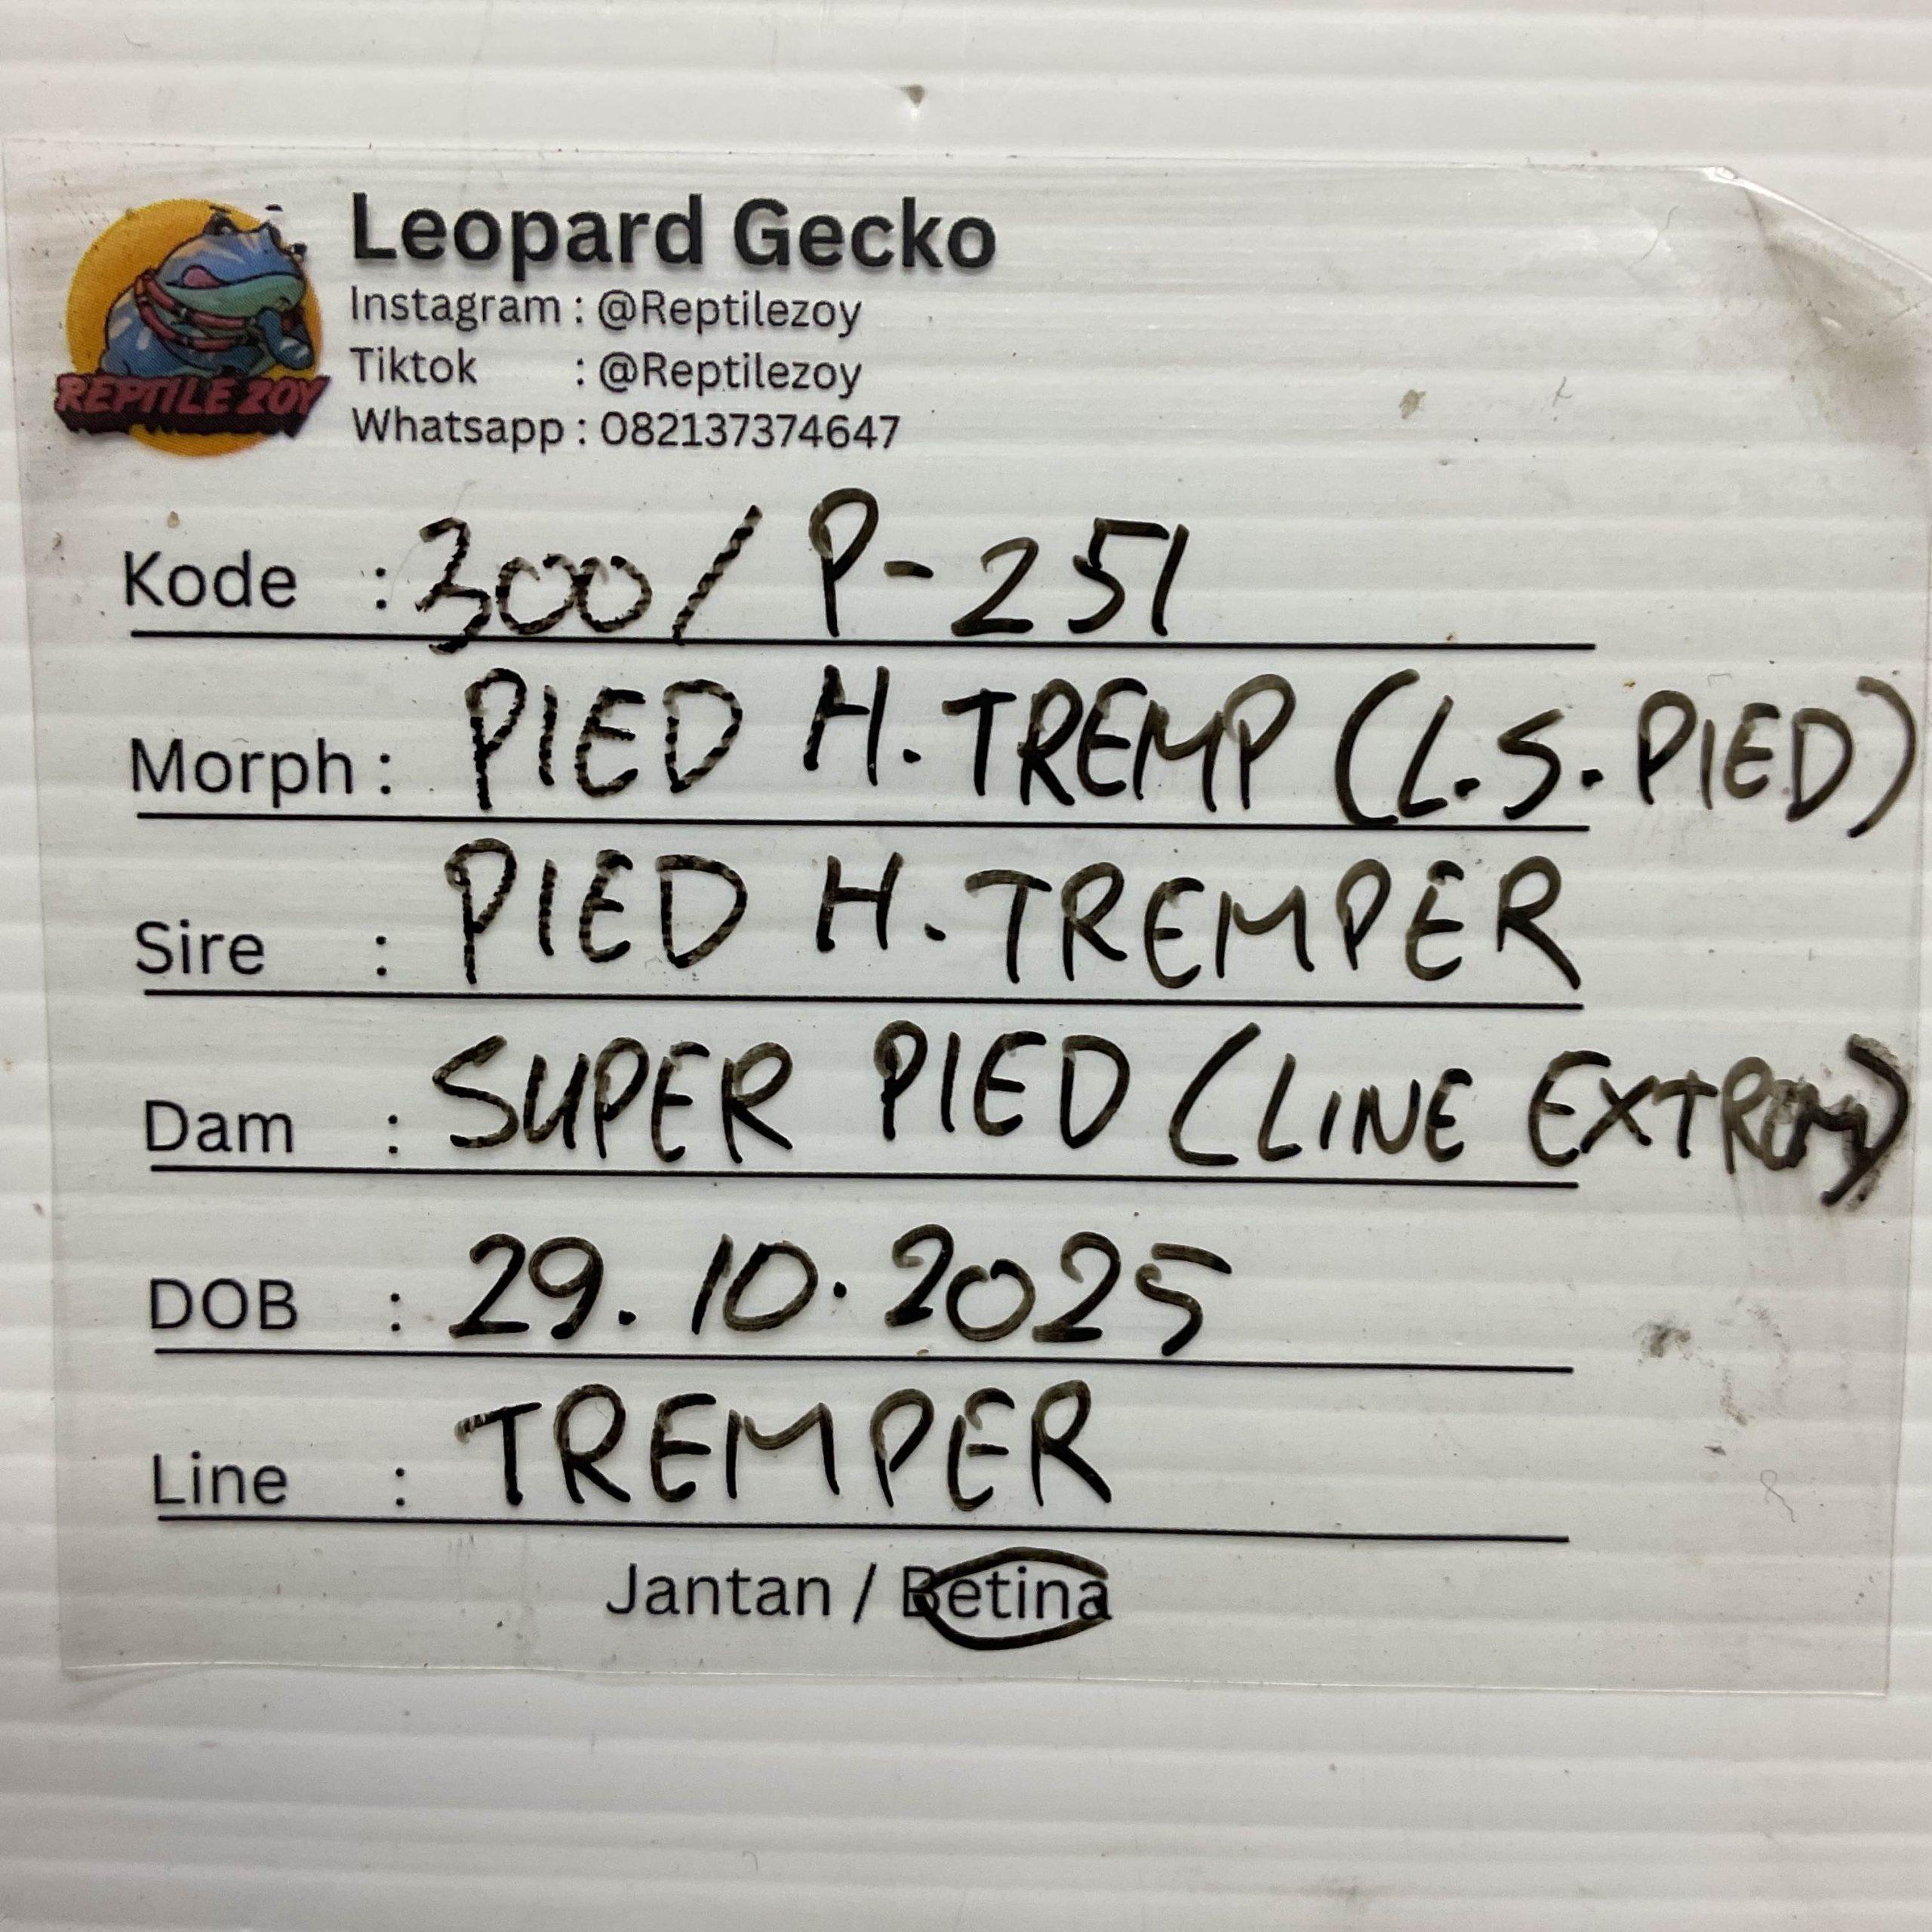 REPTILE ZOY
Leopard Gecko
Instagram : @Reptilezoy
Tiktok : @Reptilezoy
Whatsapp : 082137374647
Kode : 300/ P-251
Morph : PIED H. TREMP (L.S. PIED)
Sire : PIED H. TREMPER
Dam : SUPER PIED (LINE
DOB : 29.10.2025
Line : TREMPER
Jantan / Betina